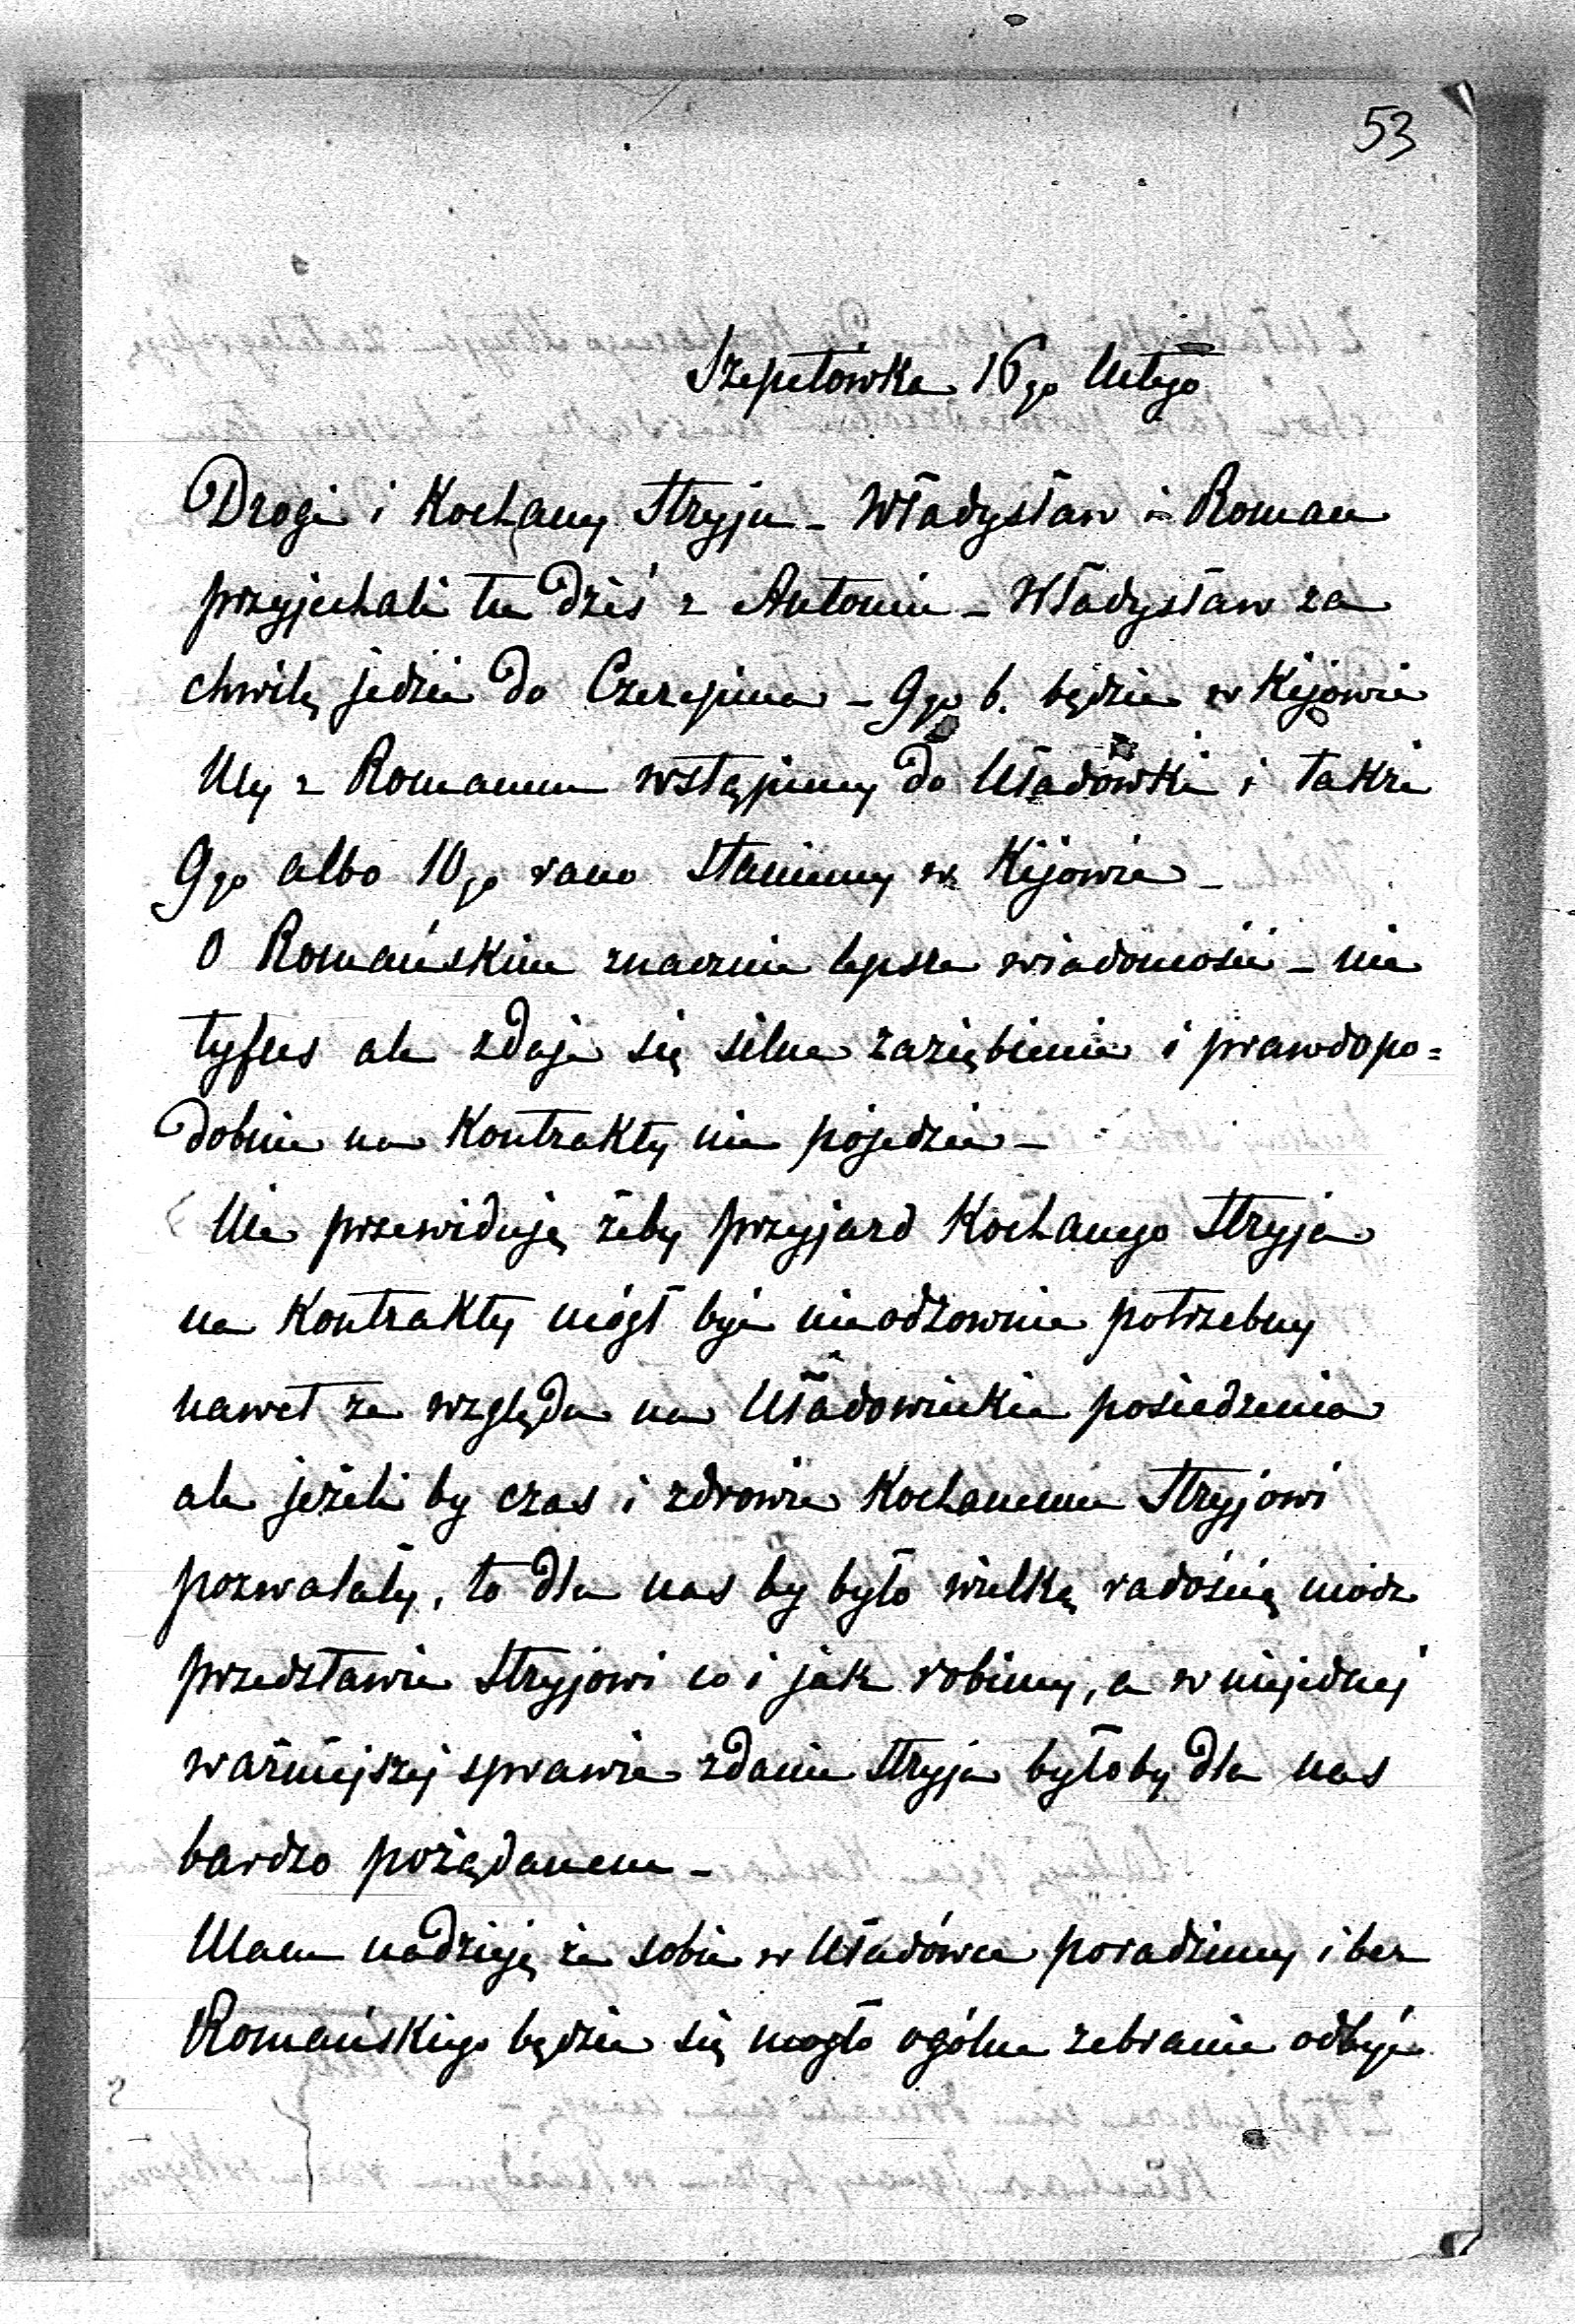 53
Szepetówka 16go lutego
Drogi i Kochany Stryju - Władysław i Roman
przyjechali tu dziś z Antonin - Władysław za
chwilę jedzie do Czerepina - 9go b. będzie w Kijowie
My z Romanem wstąpimy do Uładówki i także
9go albo 10go rano staniemy w Kijowie -
O Romańskim znacznie lepsze wiadomości - nie
tyfus ale zdaje się silne zaziębienie i prawdopo=
dobnie na Kontrakty nie pojedzie -
Nie przewiduję żeby przyjazd Kochanego Stryja
na Kontrakty mógł być nieodzownie potrzebny
nawet ze względu na Uładowieckie posiedzenia
ale jeżeli by czas i zdrowie Kochanemu Stryjowi
pozwalały, to dla nas by było wielką radością módz
przedstawić Stryjowi co i jak robimy, a w niejednej
ważniejszej sprawie zdanie Stryja byłoby dla nas
bardzo pożądanem -
Mam nadzieję że sobie w Uładówce poradzimy i bez
Romańskiego będzie się mogło ogólne zebranie odbyć